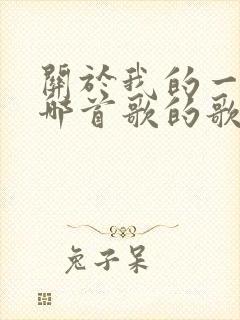 關於我的一
哪首歌的歌
兔子呆